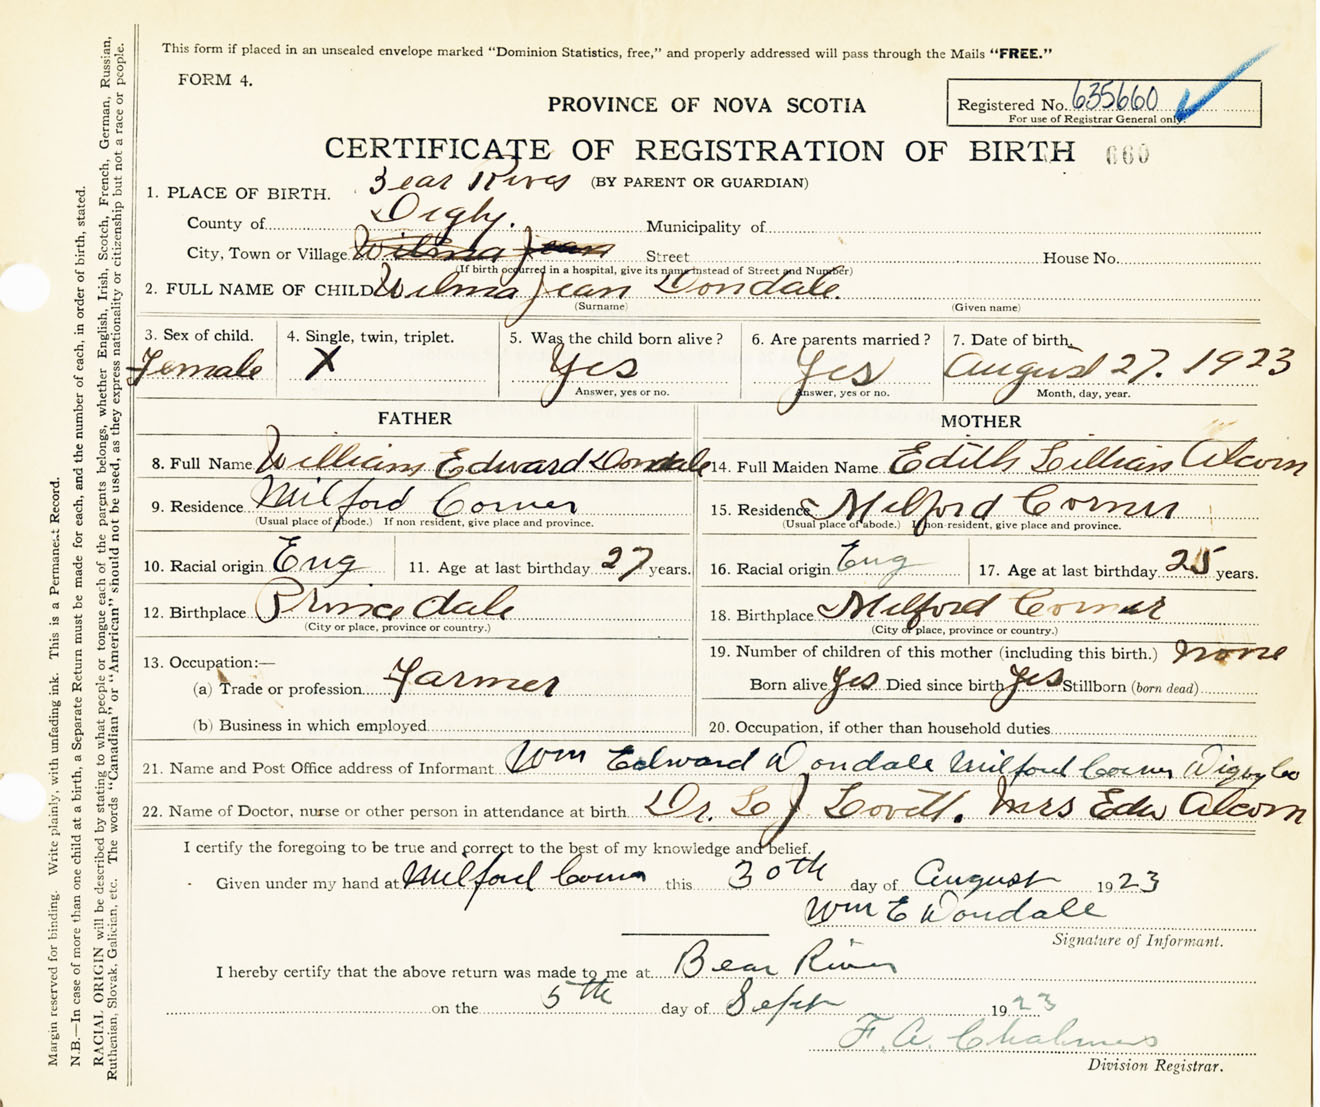 This form if placed in an unsealed envelope marked "Dominion Statistics, free," and properly addressed will pass through the Mails "FREE."
FORM 4.
Registered No. 635660
For use of Registrar General only.
PROVINCE OF NOVA SCOTIA
CERTIFICATE OF REGISTRATION OF BIRTH 660
(BY PARENT OR GUARDIAN)
1. PLACE OF BIRTH. Bear River
County of Digby. Municipality of
City, Town or Village Wilma Jean Street House No.
(If birth occurred in a hospital, give its name instead of Street and Number)
2. FULL NAME OF CHILD Wilma Jean Dondale.
(Surname) (Given name)
3. Sex of child. 4. Single, twin, triplet. 5. Was the child born alive? 6. Are parents married? 7. Date of birth.
Female X Yes Yes August 27. 1923
Answer, yes or no. Answer, yes or no. Month, day, year.
FATHER MOTHER
8. Full Name William Edward Dondale 14. Full Maiden Name Edith Lillian Alcorn
9. Residence Milford Corner 15. Residence Milford Corner
(Usual place of abode.) If non resident, give place and province. (Usual place of abode.) If non-resident, give place and province.
10. Racial origin Eng 11. Age at last birthday 27 years. 16. Racial origin Eng 17. Age at last birthday 25 years.
12. Birthplace Princedale 18. Birthplace Milford Corner
(City or place, province or country.) (City or place, province or country.)
13. Occupation:— 19. Number of children of this mother (including this birth.) none
(a) Trade or profession Farmer Born alive Yes Died since birth Yes Stillborn (born dead)
(b) Business in which employed 20. Occupation, if other than household duties
21. Name and Post Office address of Informant Wm Edward Dondale Milford Corner Digby Co
22. Name of Doctor, nurse or other person in attendance at birth Dr. L J Lovitt. Mrs Edw Alcorn
I certify the foregoing to be true and correct to the best of my knowledge and belief.
Given under my hand at Milford Corner this 30th day of August 1923
Wm E Dondale
Signature of Informant.
I hereby certify that the above return was made to me at Bear River
on the 5th day of Sept 1923
F. A. Chalmers
Division Registrar.
Margin reserved for binding. Write plainly, with unfading ink. This is a Permanent Record.
N.B.—In case of more than one child at a birth, a Separate Return must be made for each, and the number of each, in order of birth, stated.
RACIAL ORIGIN will be described by stating to what people or tongue each of the parents belongs, whether English, Irish, Scotch, French, German, Russian,
Ruthenian, Slovak, Galician, etc. The words "Canadian" or "American" should not be used, as they express nationality or citizenship but not a race or people.